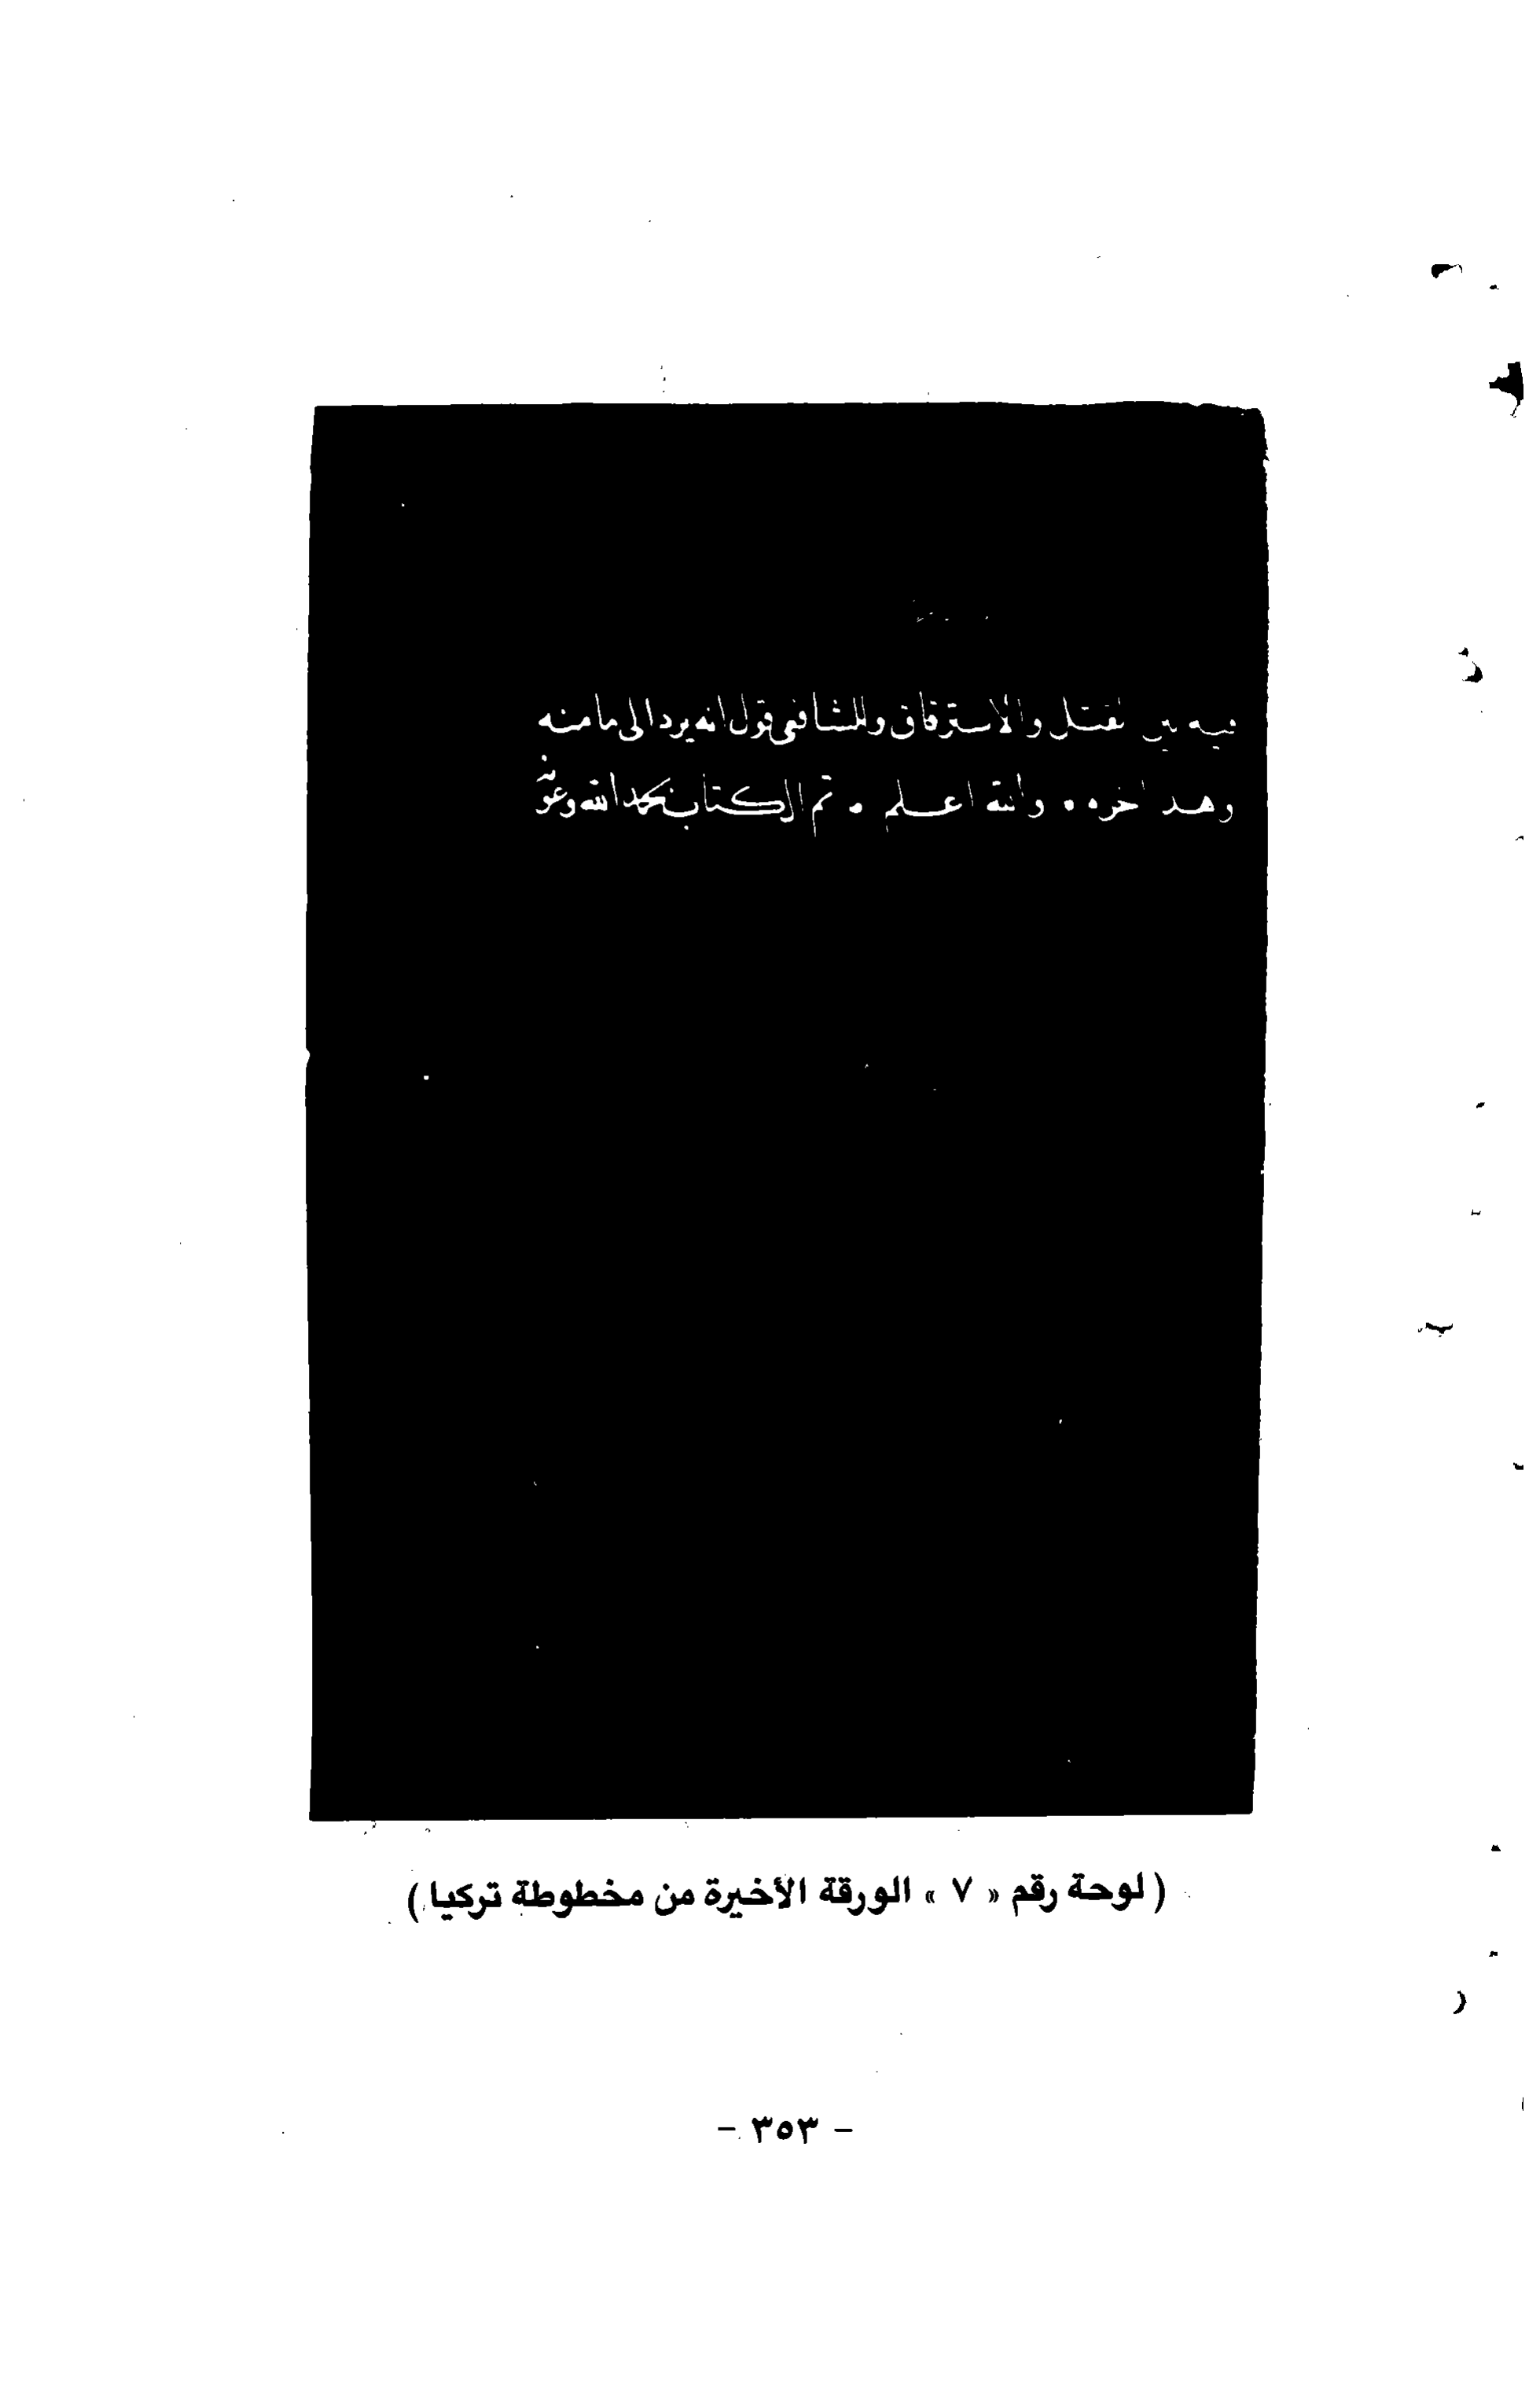 فيه بين القتل والاسترقاق وللشافعي قول انه يرد الى مامنه
وهذا اخره والله اعلم تم الكتاب بحمد الله وعونه
(لوحة رقم « ٧ » الورقة الأخيرة من مخطوطة تركيا)
- ٣٥٣ -